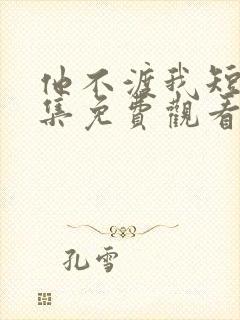 他不渡我短
集免費觀看
孔雪